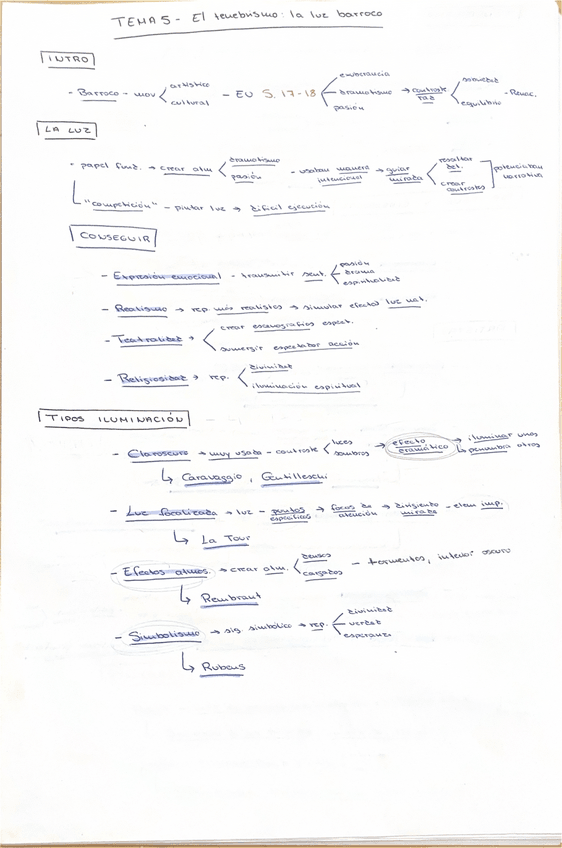 TEMA 5 - El tenebrismo: la luz barroco
INTRO
- Barroco - mov < artístico / cultural - EU S. 17-18 < exuberancia / dramatismo / pasión → contraste < suavidad / equilibrio - Renac.
LA LUZ
- papel fund. → crear atm < dramatismo / pasión - usaban manera intencional → guiar mirada < resaltar det. / crear contrastes ] potenciaban narrativa
↳ "competición" - pintar luz → difícil ejecución
CONSEGUIR
- Expresión emocional - transmitir sent. < pasión / drama / espiritualidad
- Realismo → rep. más realistas → simular efectos luz nat.
- Teatralidad → < crear escenografías espect. / sumergir espectador acción
- Religiosidad → rep. < divinidad / iluminación espiritual
TIPOS ILUMINACIÓN
- Claroscuro → muy usada - contraste < luces / sombras → efecto dramático → iluminar unos ↳ penumbra otros
↳ Caravaggio, Gentilleschi
- Luz focalizada → luz - puntos específicos → focos de atención → dirigiendo mirada - elem imp.
↳ La Tour
- Efectos atmos. → crear atm. < densos / cargados - tormentos, interior oscuro
↳ Rembrant
- Simbolismo → sig. simbólico → rep. < divinidad / verdad / esperanza
↳ Rubens